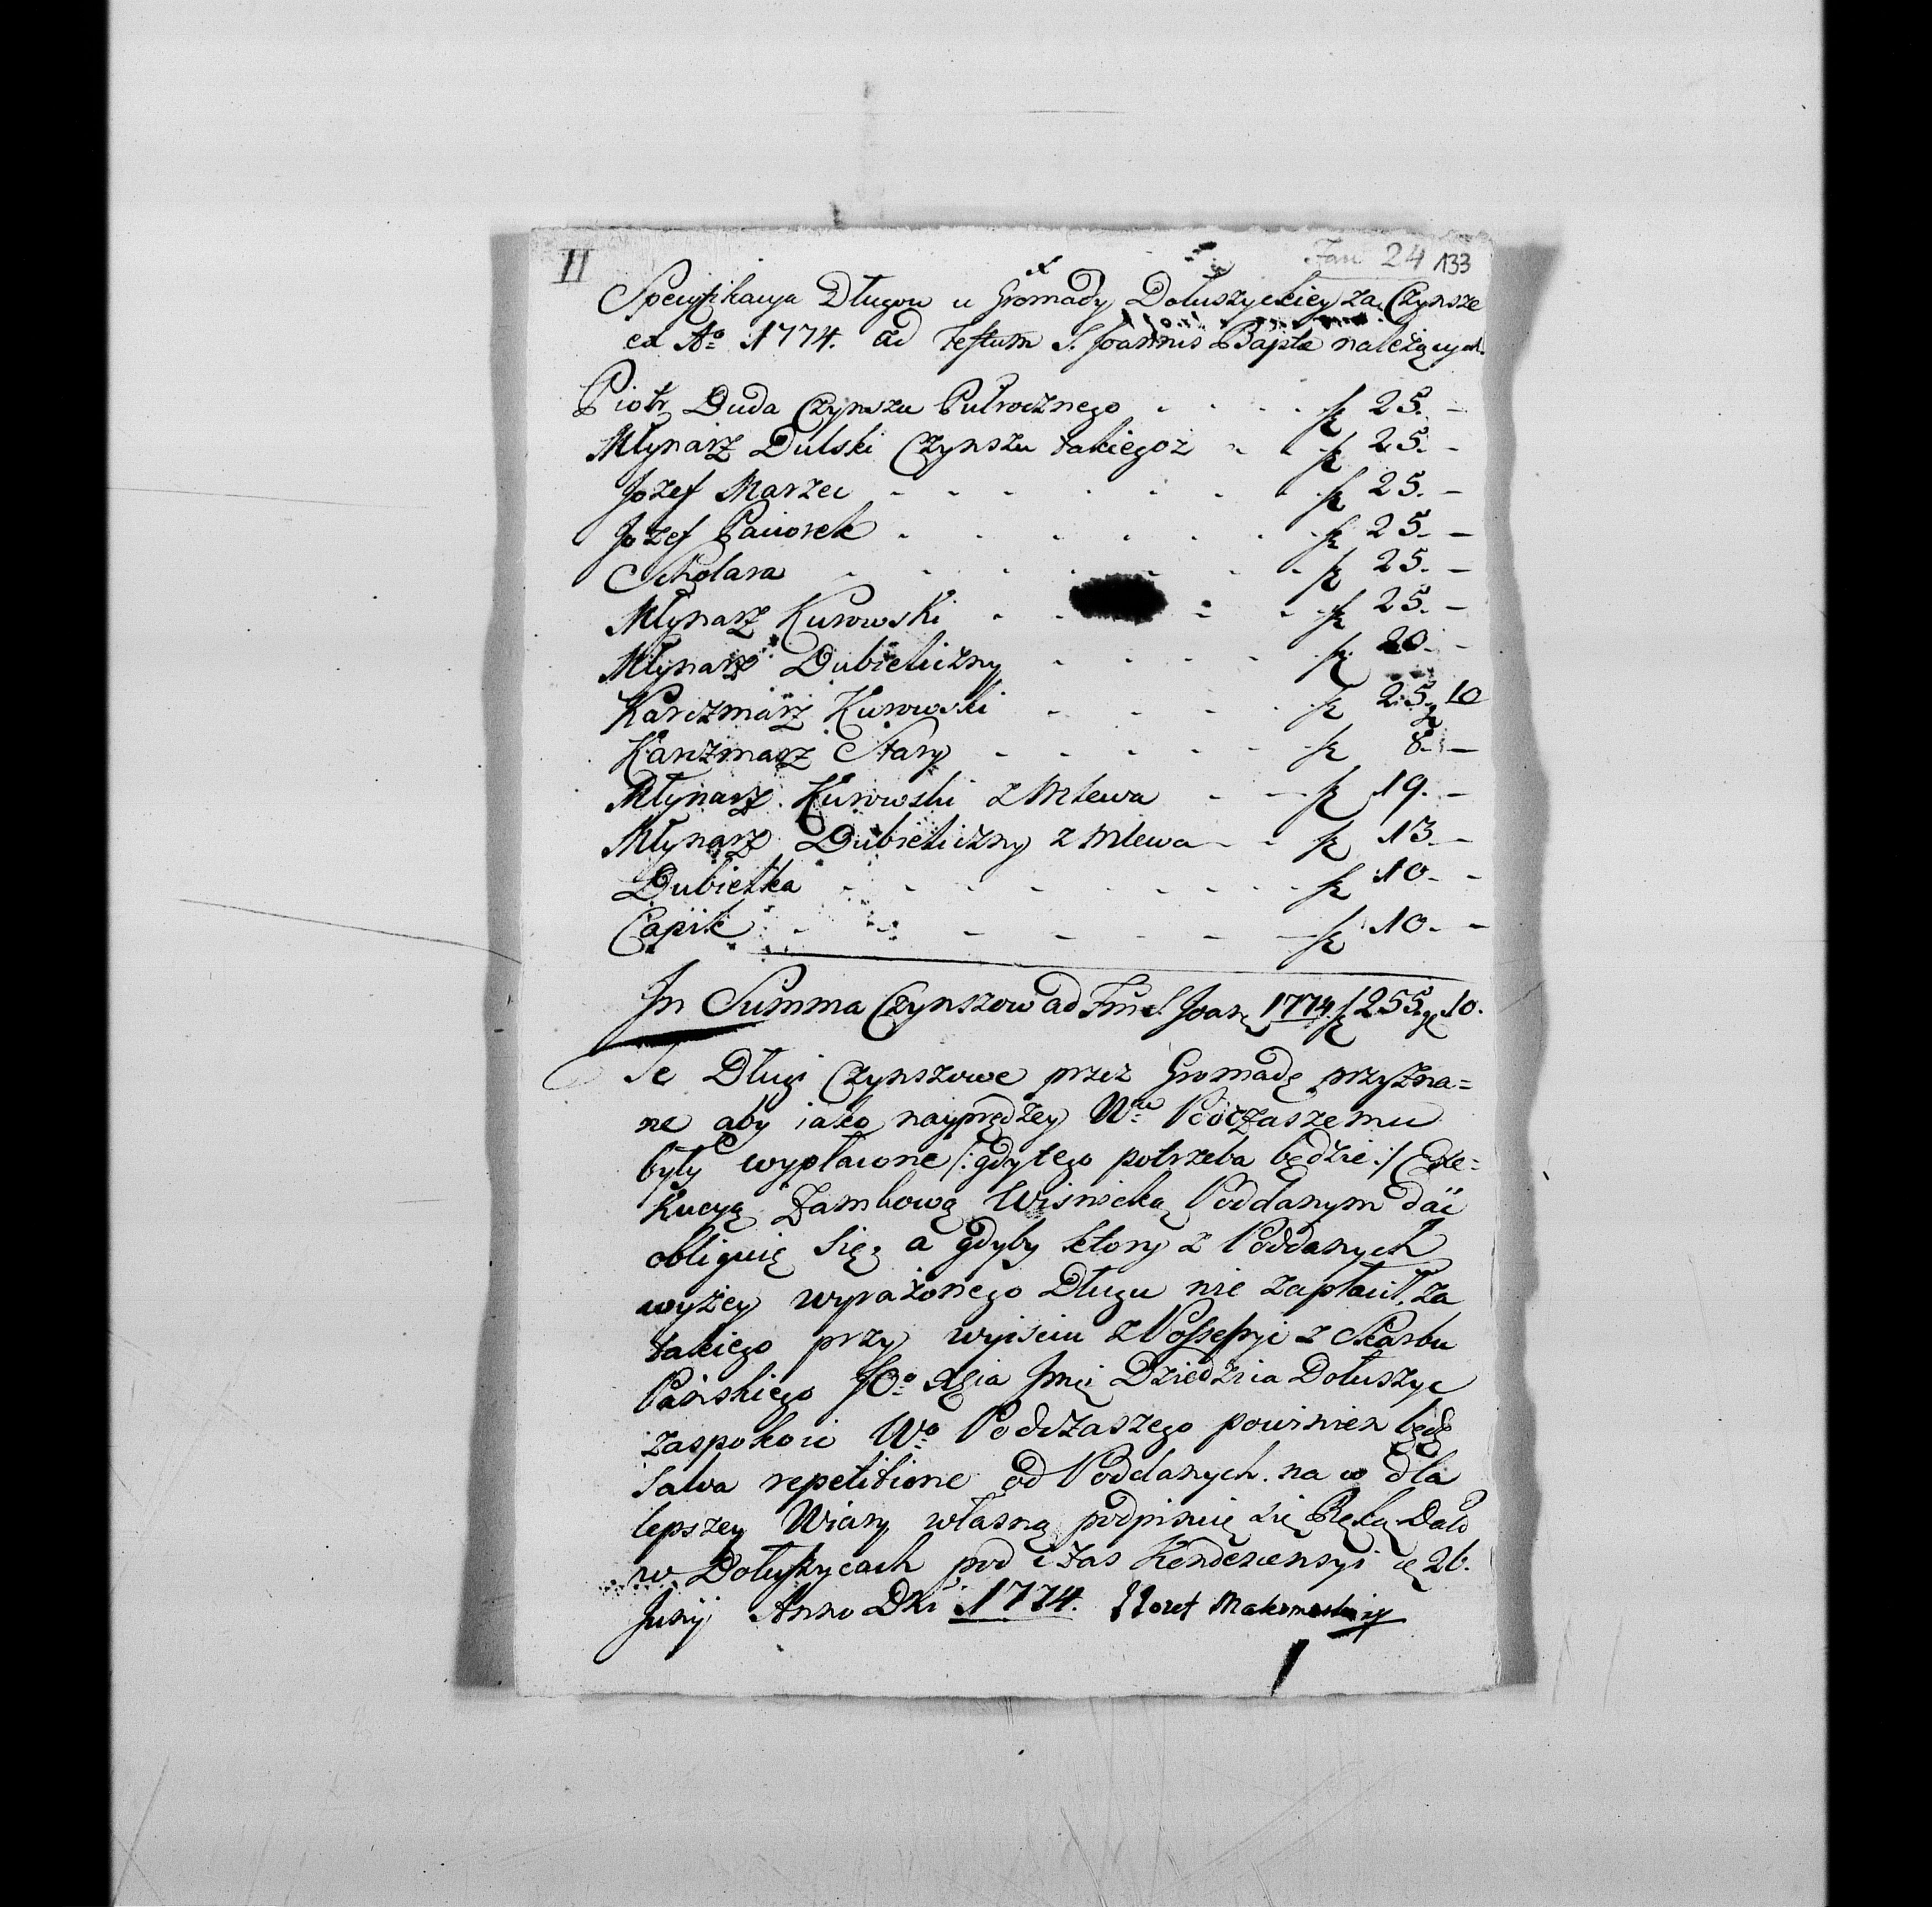 II
Fau 24 133
Specyfikacya Długow u Gromady Dołuszyckiey za Czynsze
ex Aº 1774. ad Festum S. Joannis Bapta należących.
Piotr Duda Czynszu Pułrocznego . . . . fl 25. –
Młynarz Dulski Czynszu takiegoż - - fl 25. -
Jozef Marzec - - - . . - . fl 25. –
Jozef Paciorek . . . . . . fl 25. –
Scholara - - . . . - - fl 25. –
Młynarz Kurowski - . - - fl 25. –
Młynarz Dubieliczny - - - - fl 20. -
Karczmarz Kurowski - - - - fl 25 g 10
Karczmarz Stary - - - - - fl 8. –
Młynarz Kurowski z Mlewa - - fl 19. –
Młynarz Dubieliczny z Mlewa - - fl 13. –
Dubielka - - - - - - - fl 10. -
Capik - - - - - - fl 10. -
In Summa Czynszow ad Fm S Joan 1774 fl 255 gr 10.
Te Długi Czynszowe przez Gromadę przyzna=
ne aby iako nayprędzey Wu Podczaszemu
były wypłacone /: gdy tego potrzeba będzie :/ Exe=
kucyą Zamkową Wisnicką Poddanym dać
obliguię się, a gdyby ktory z Poddanych
wyżey wyrażonego Długu nie zapłacił, za
takiego przy wyisciu z Possessyi z Skarbu
Pańskiego JOº Xcia Jmci Dziedzica Dołuszyc
zaspokoic Wº Podczaszego powinien będę
salva repetitione od Poddanych. na co dla
lepszey Wiary własną podpisuię się Ręką Dato
w Dołuszycach pod czas Kondescensyi d 26.
Junij Anno Dni 1774.